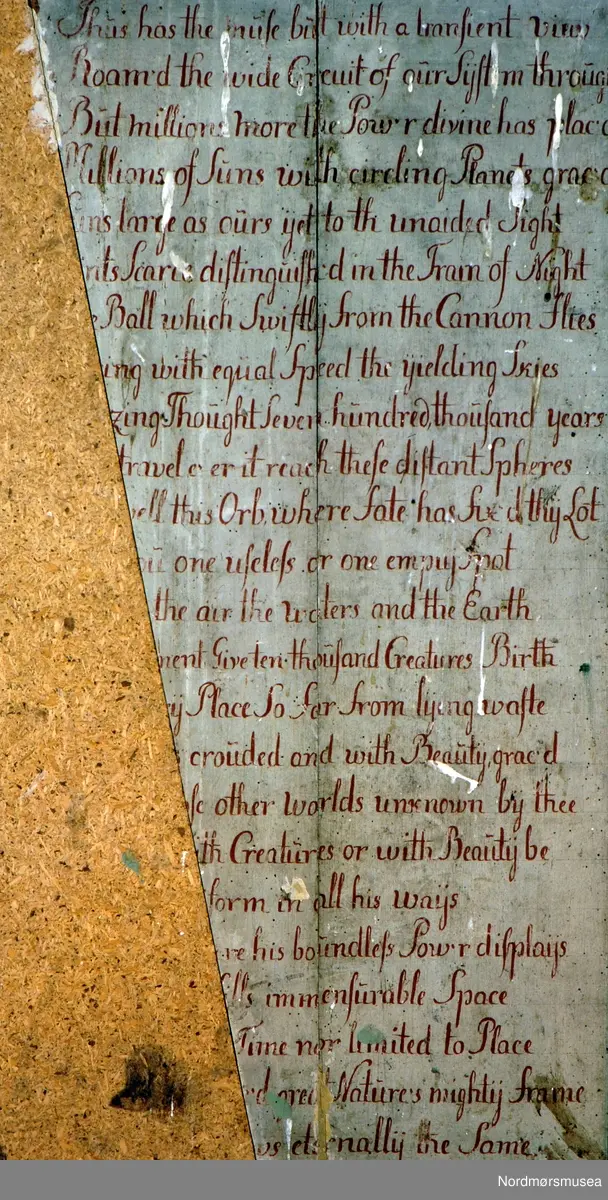 Thus has the muse but with a transient view
Roam'd the wide Circuit of our System through
But millions more the Pow'r divine has plac'd
Millions of Suns with circling Planets grac'd
Suns large as ours yet to th unaided Sight
distinguish'd in the Train of Night
Ball which Swiftly from the Cannon Flies
ing with equal Speed the yielding Skies
zing Thought Seven hundred thousand years
travel e er it reach these distant Spheres
ell this Orb where Fate has fix'd thy Lot
ou one useless or one empty Spot
the air the waters and the Earth
ment Give ten thousand Creatures Birth
ry Place So far from lying waste
crouded and with Beauty grac'd
se other worlds unknown by thee
ith Creatures or with Beauty be
form in all his ways
re his boundless Pow'r displays
lls immensurable Space
Time nor limited to Place
d great Nature's mighty frame
ws eternally the Same
Nordmørsmusea